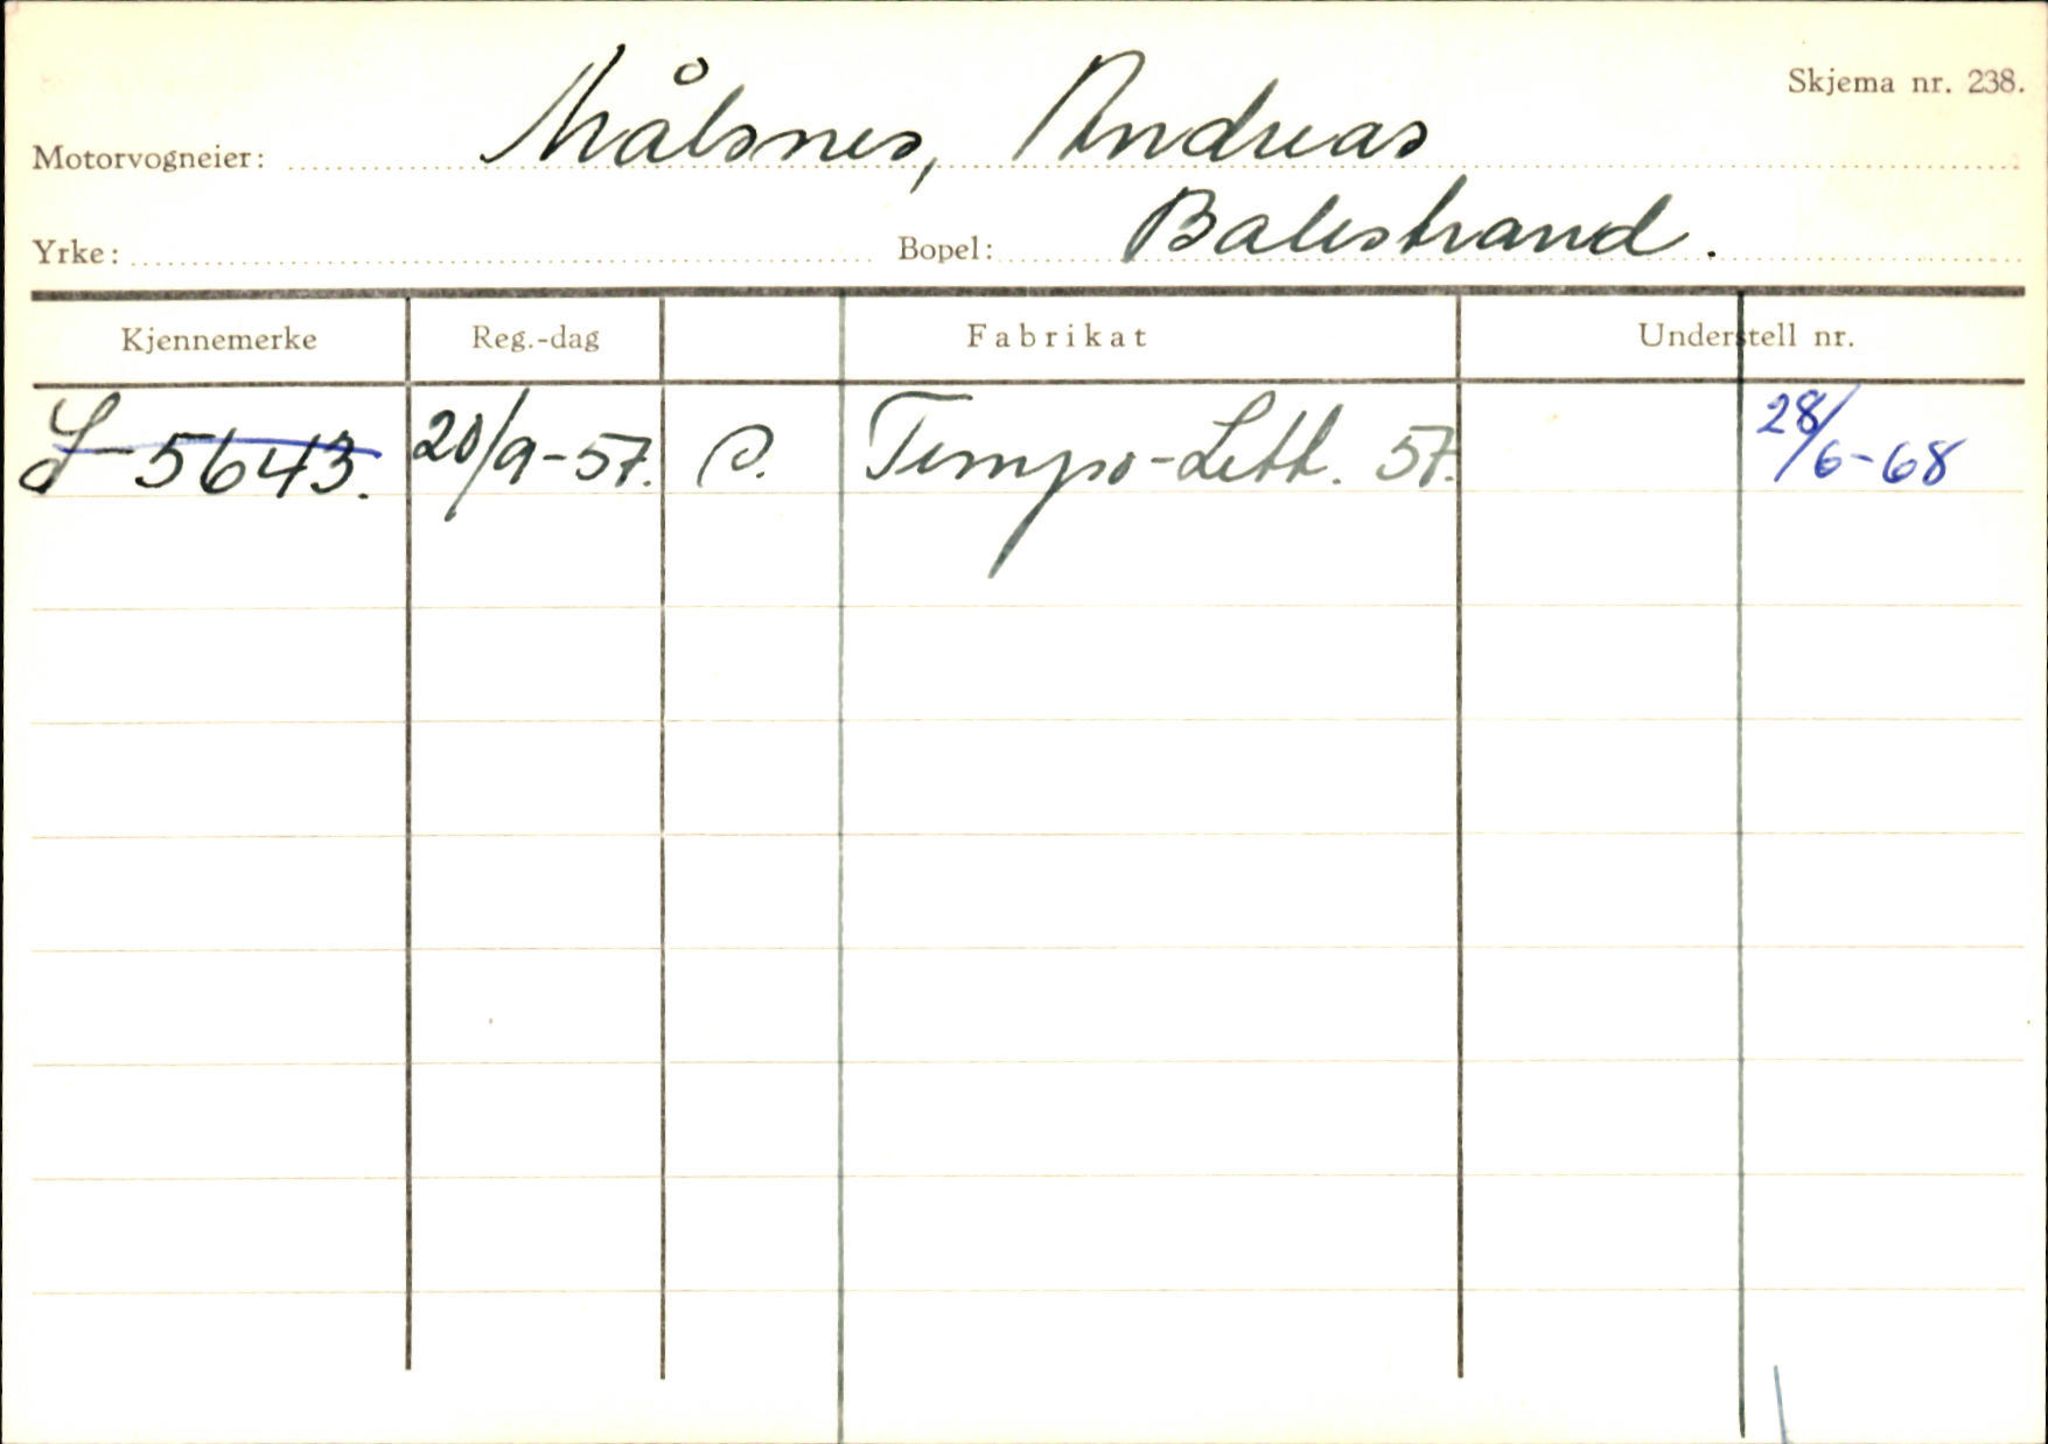 Skjema nr. 238.
Motorvogneier: Målsnes, Andreas
Yrke: Bopel: Balestrand.
Kjennemerke Reg.-dag Fabrikat Understell nr.
S-5643. 20/9-57. P. Tempo-Lett. 57. 28/6-68